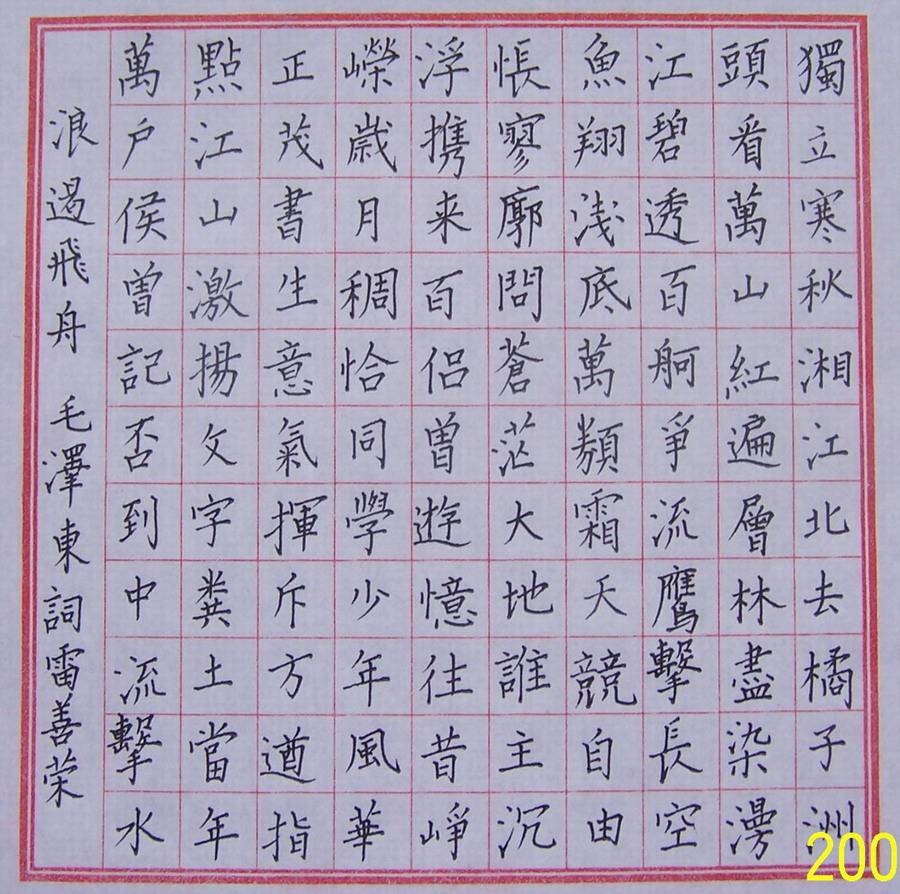 獨立寒秋湘江北去橘子洲
頭看萬山紅遍層林盡染漫
江碧透百舸爭流鷹擊長空
魚翔淺底萬類霜天競自由
悵寥廓問蒼茫大地誰主沉
浮携来百侣曾遊憶往昔崢
嶸歲月稠恰同學少年風華
正茂書生意氣揮斥方遒指
點江山激揚文字糞土當年
萬户侯曾記否到中流擊水
浪遏飛舟 毛澤東詞雷善荣
200